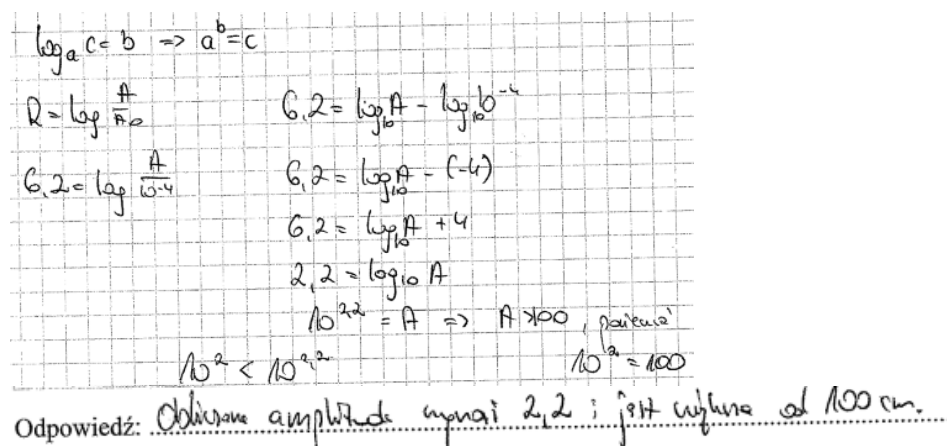 log_a c = b => a^b = c
R = log A/A_0
6,2 = log A/10^-4
6,2 = log_10 A - log_10 10^-4
6,2 = log_10 A - (-4)
6,2 = log_10 A + 4
2,2 = log_10 A
10^2,2 = A => A > 100, ponieważ
10^2 < 10^2,2
10^2 = 100
Odpowiedź: Obliczona amplituda wynosi 2,2 i jest większa od 100 cm.